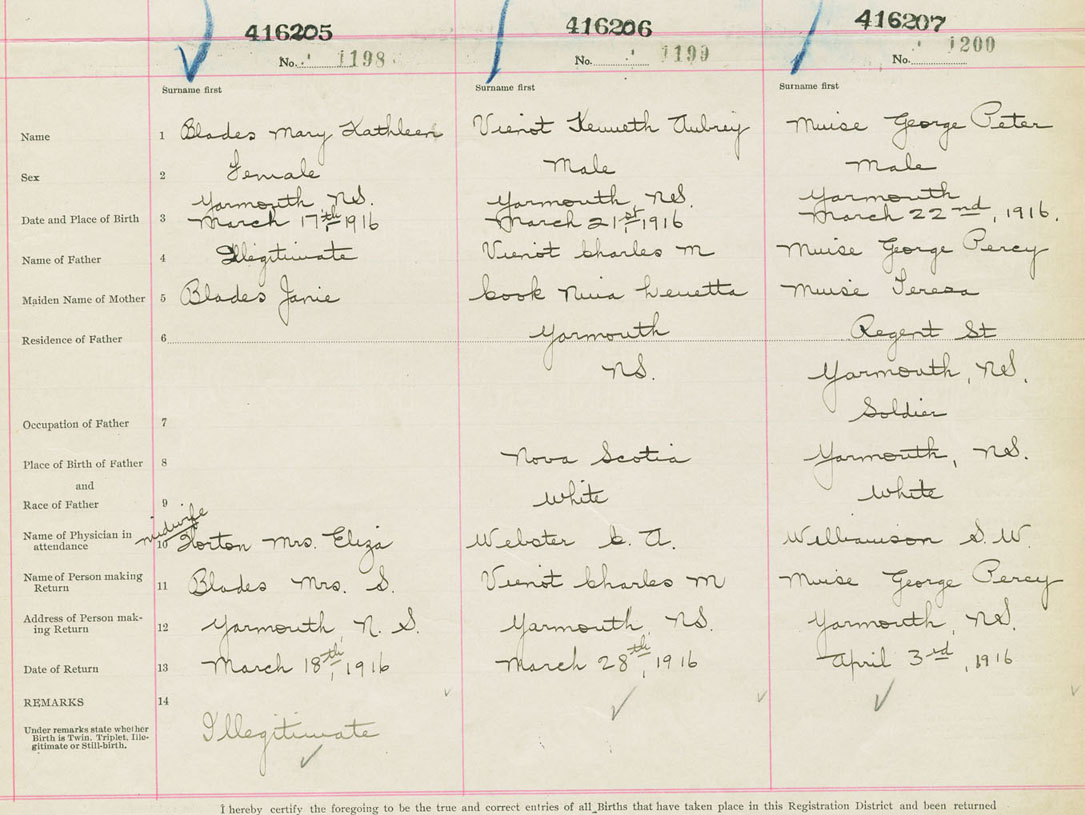 416205 416206 416207
No. 1198 No. 1199 No. 1200
Surname first Surname first Surname first
Name 1 Blades Mary Kathleen Vienot Kenneth Aubrey Muise George Peter
Sex 2 Female Male Male
Yarmouth, NS. Yarmouth, NS. Yarmouth
Date and Place of Birth 3 March 17th, 1916 March 21st, 1916 March 22nd, 1916.
Name of Father 4 Illegitimate Vienot Charles M Muise George Percy
Maiden Name of Mother 5 Blades Janie Cook Nina Levetta Muise Teresa
Residence of Father 6 Yarmouth Regent St
NS. Yarmouth, NS.
Occupation of Father 7 Soldier
Place of Birth of Father 8 Nova Scotia Yarmouth, NS.
and
Race of Father 9 White White
midwife
Name of Physician in
attendance 10 Horton Mrs. Eliza Webster C. A. Williamson S. W.
Name of Person making
Return 11 Blades Mrs. S. Vienot Charles M Muise George Percy
Address of Person mak-
ing Return 12 Yarmouth, N. S. Yarmouth, NS. Yarmouth, NS.
Date of Return 13 March 18th, 1916 March 28th, 1916 April 3rd, 1916
REMARKS 14
Under remarks state whether
Birth is Twin, Triplet, Ille-
gitimate or Still-birth.
Illegitimate
I hereby certify the foregoing to be the true and correct entries of all Births that have taken place in this Registration District and been returned